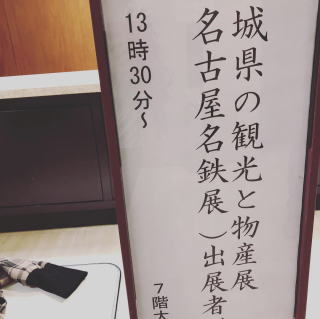 城県の観光と物産展
名古屋名鉄展）出展者
13時30分～
7階大